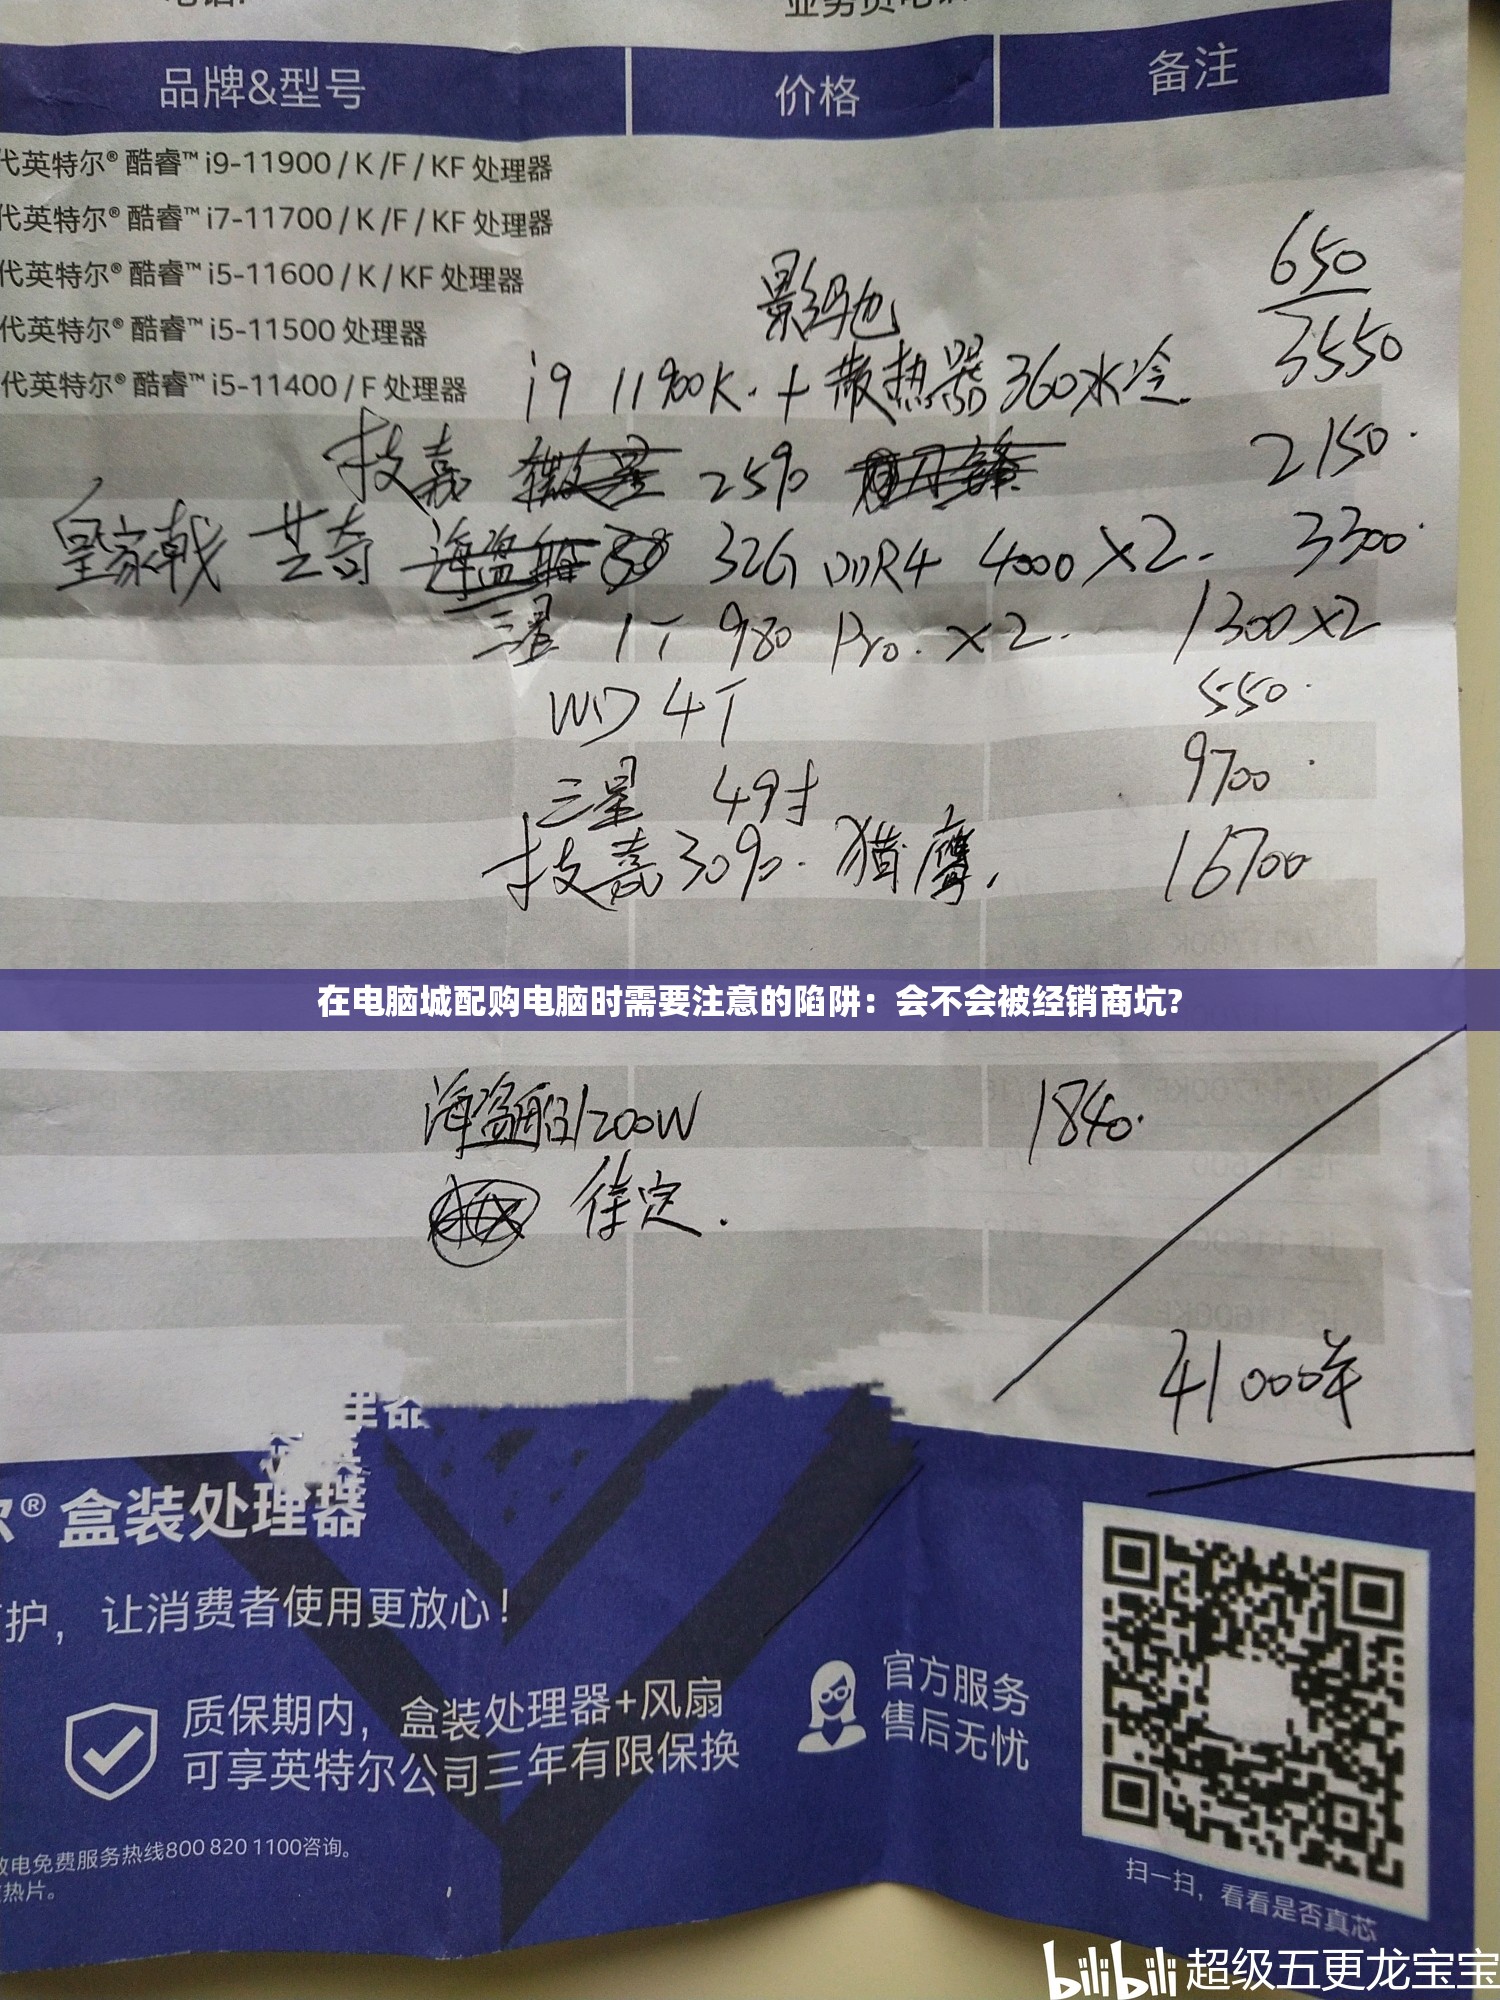 品牌&型号 价格 备注
代英特尔®酷睿™ i9-11900 / K /F / KF 处理器
代英特尔®酷睿™ i7-11700 / K /F / KF 处理器
代英特尔®酷睿™ i5-11600 / K / KF 处理器
代英特尔®酷睿™ i5-11500 处理器
代英特尔®酷睿™ i5-11400 / F 处理器
影驰 650
i9 11900K. + 散热器 360水冷. 3550
技嘉 微星 Z590 2150.
皇家戟 芝奇 海盗船 32G DDR4 4000 ×2. 3300.
三星 1T 980 Pro. ×2. 1300×2
WD 4T 550.
三星 49寸 9700.
技嘉 3090. 猎鹰. 16700
在电脑城配购电脑时需要注意的陷阱：会不会被经销商坑?
海盗船1200W 1840.
待定.
41000
尔® 盒装处理器
护，让消费者使用更放心！
质保期内，盒装处理器+风扇
可享英特尔公司三年有限保换
官方服务
售后无忧
致电免费服务热线800 820 1100咨询。
热片。
扫一扫，看看是否真芯
bilibili 超级五更龙宝宝